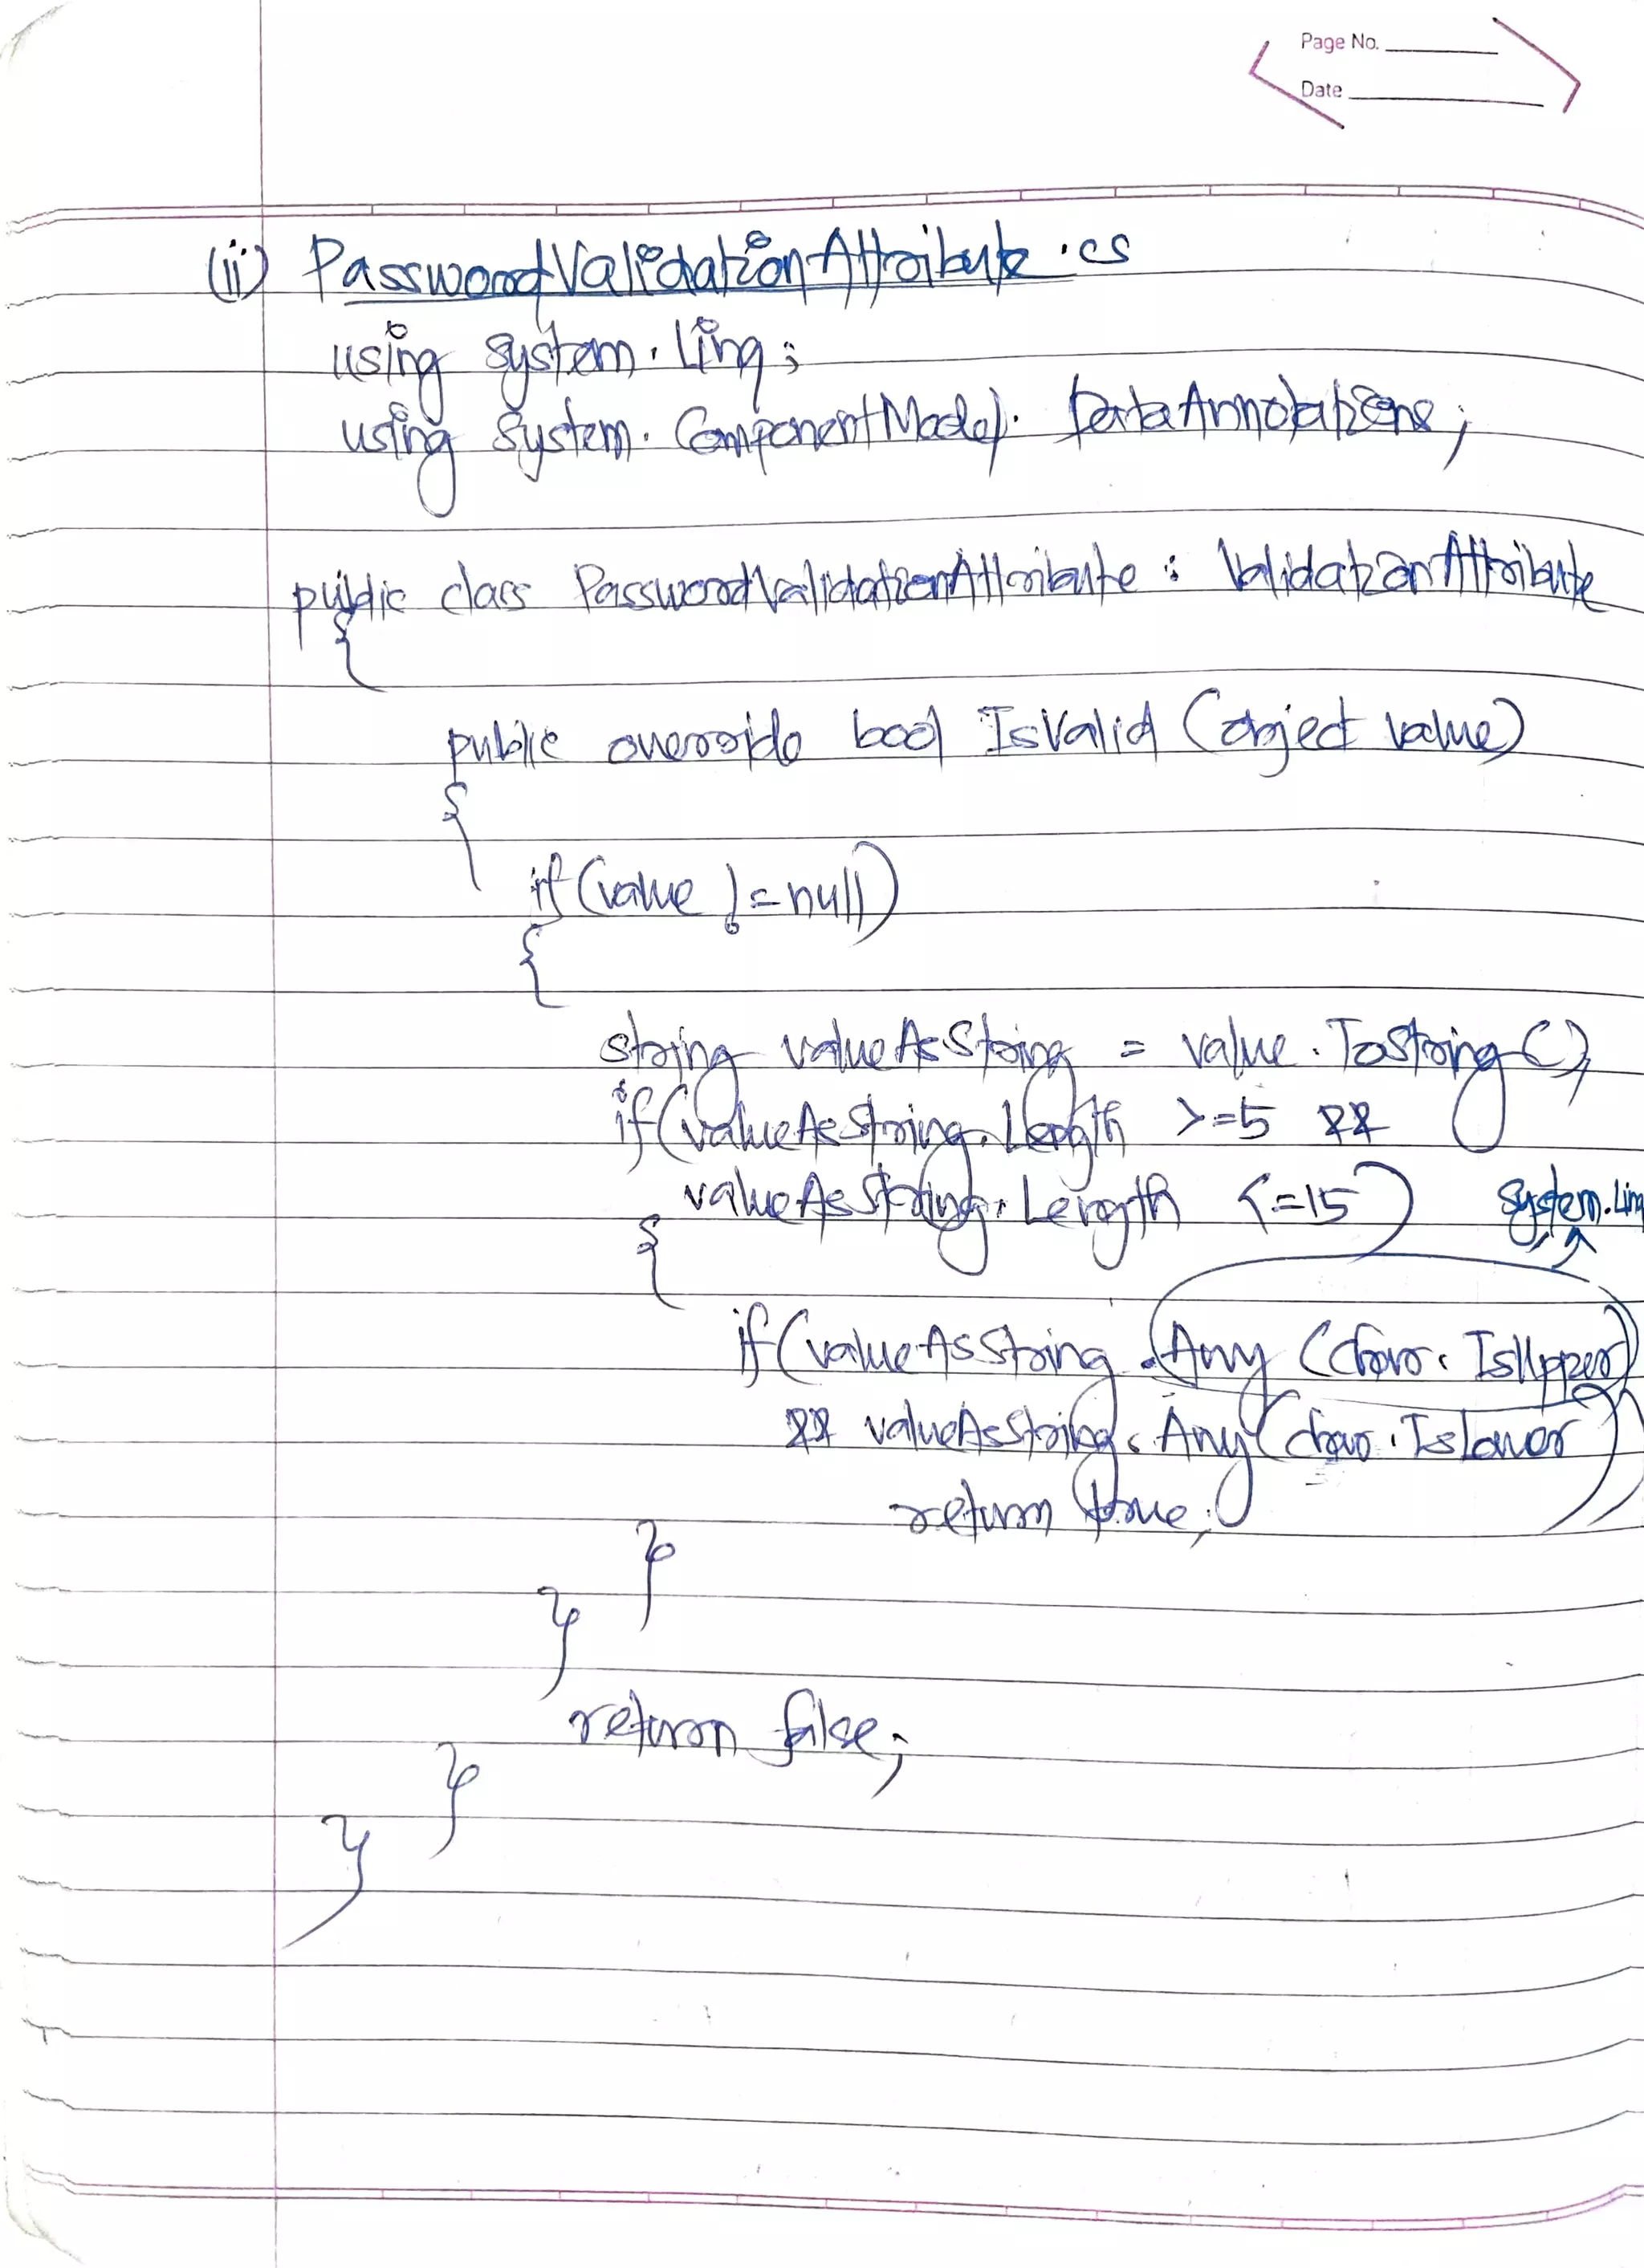 Page No.
Date
(ii) PasswordValidationAttribute.cs
using system.Linq;
using system.ComponentModel.DataAnnotations;
public class PasswordValidationAttribute : ValidationAttribute
{
public override bool IsValid (object value)
{
if (value != null)
{
string valueAsString = value.ToString();
if (valueAsString.Length >=5 &&
valueAsString.Length <=15)
System.Linq
{
if (valueAsString.Any (char.IsUpper)
&& valueAsString.Any (char.IsLower))
return true;
}
}
return false;
}
}